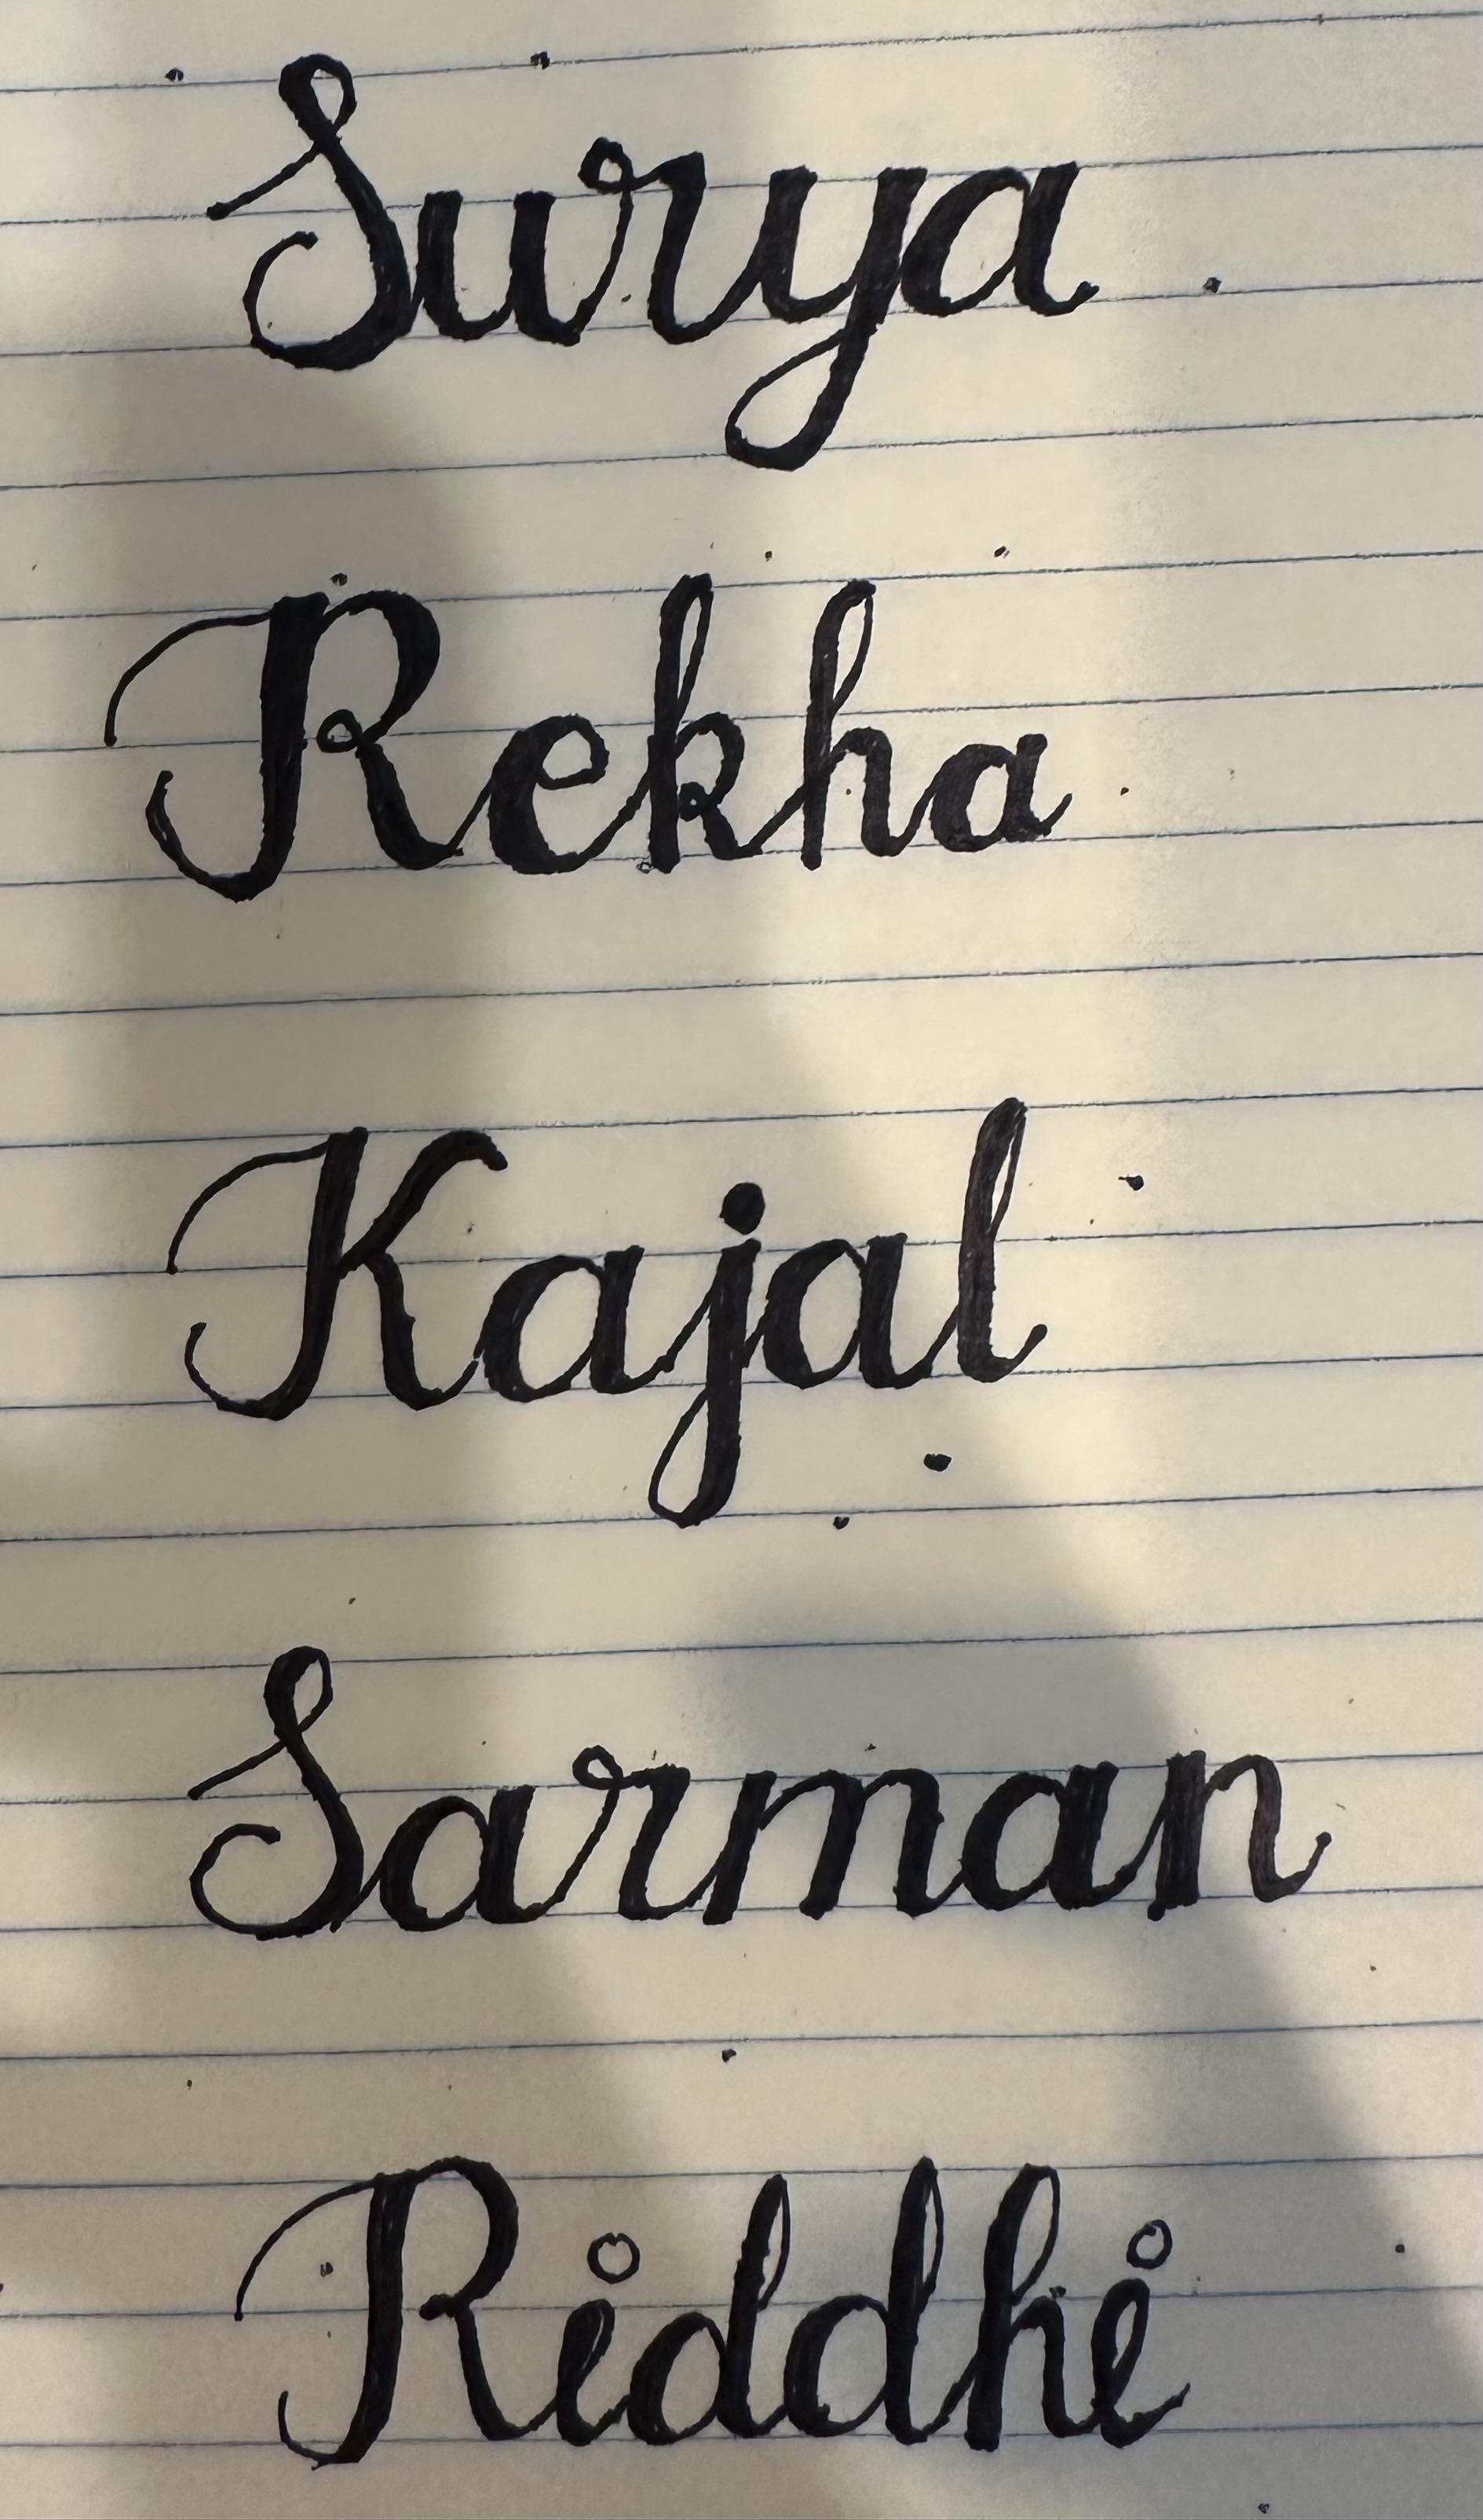 Surya
Rekha
Kajal
Sarman
Riddhi